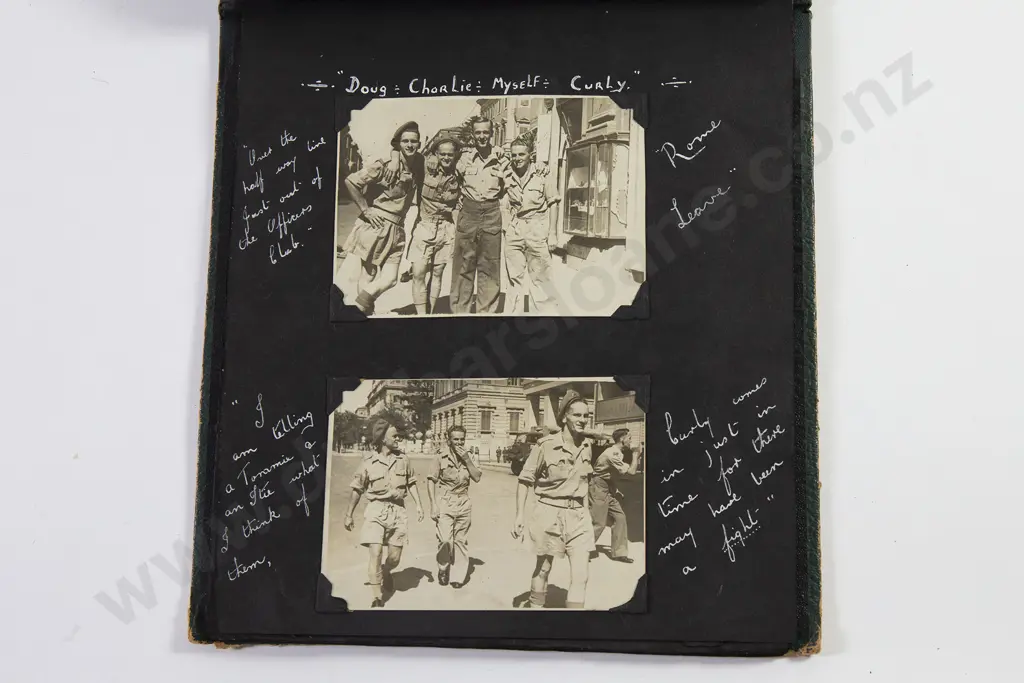 "Doug ÷ Charlie ÷ Myself ÷ Curly."
"Over the
half way line
Just out of
the Officers
Club."
"Rome
Leave"
"I
am telling
a Tommie &
an Itie what
I think of
them,
Curly comes
in just in
time for there
may have been
a fight"